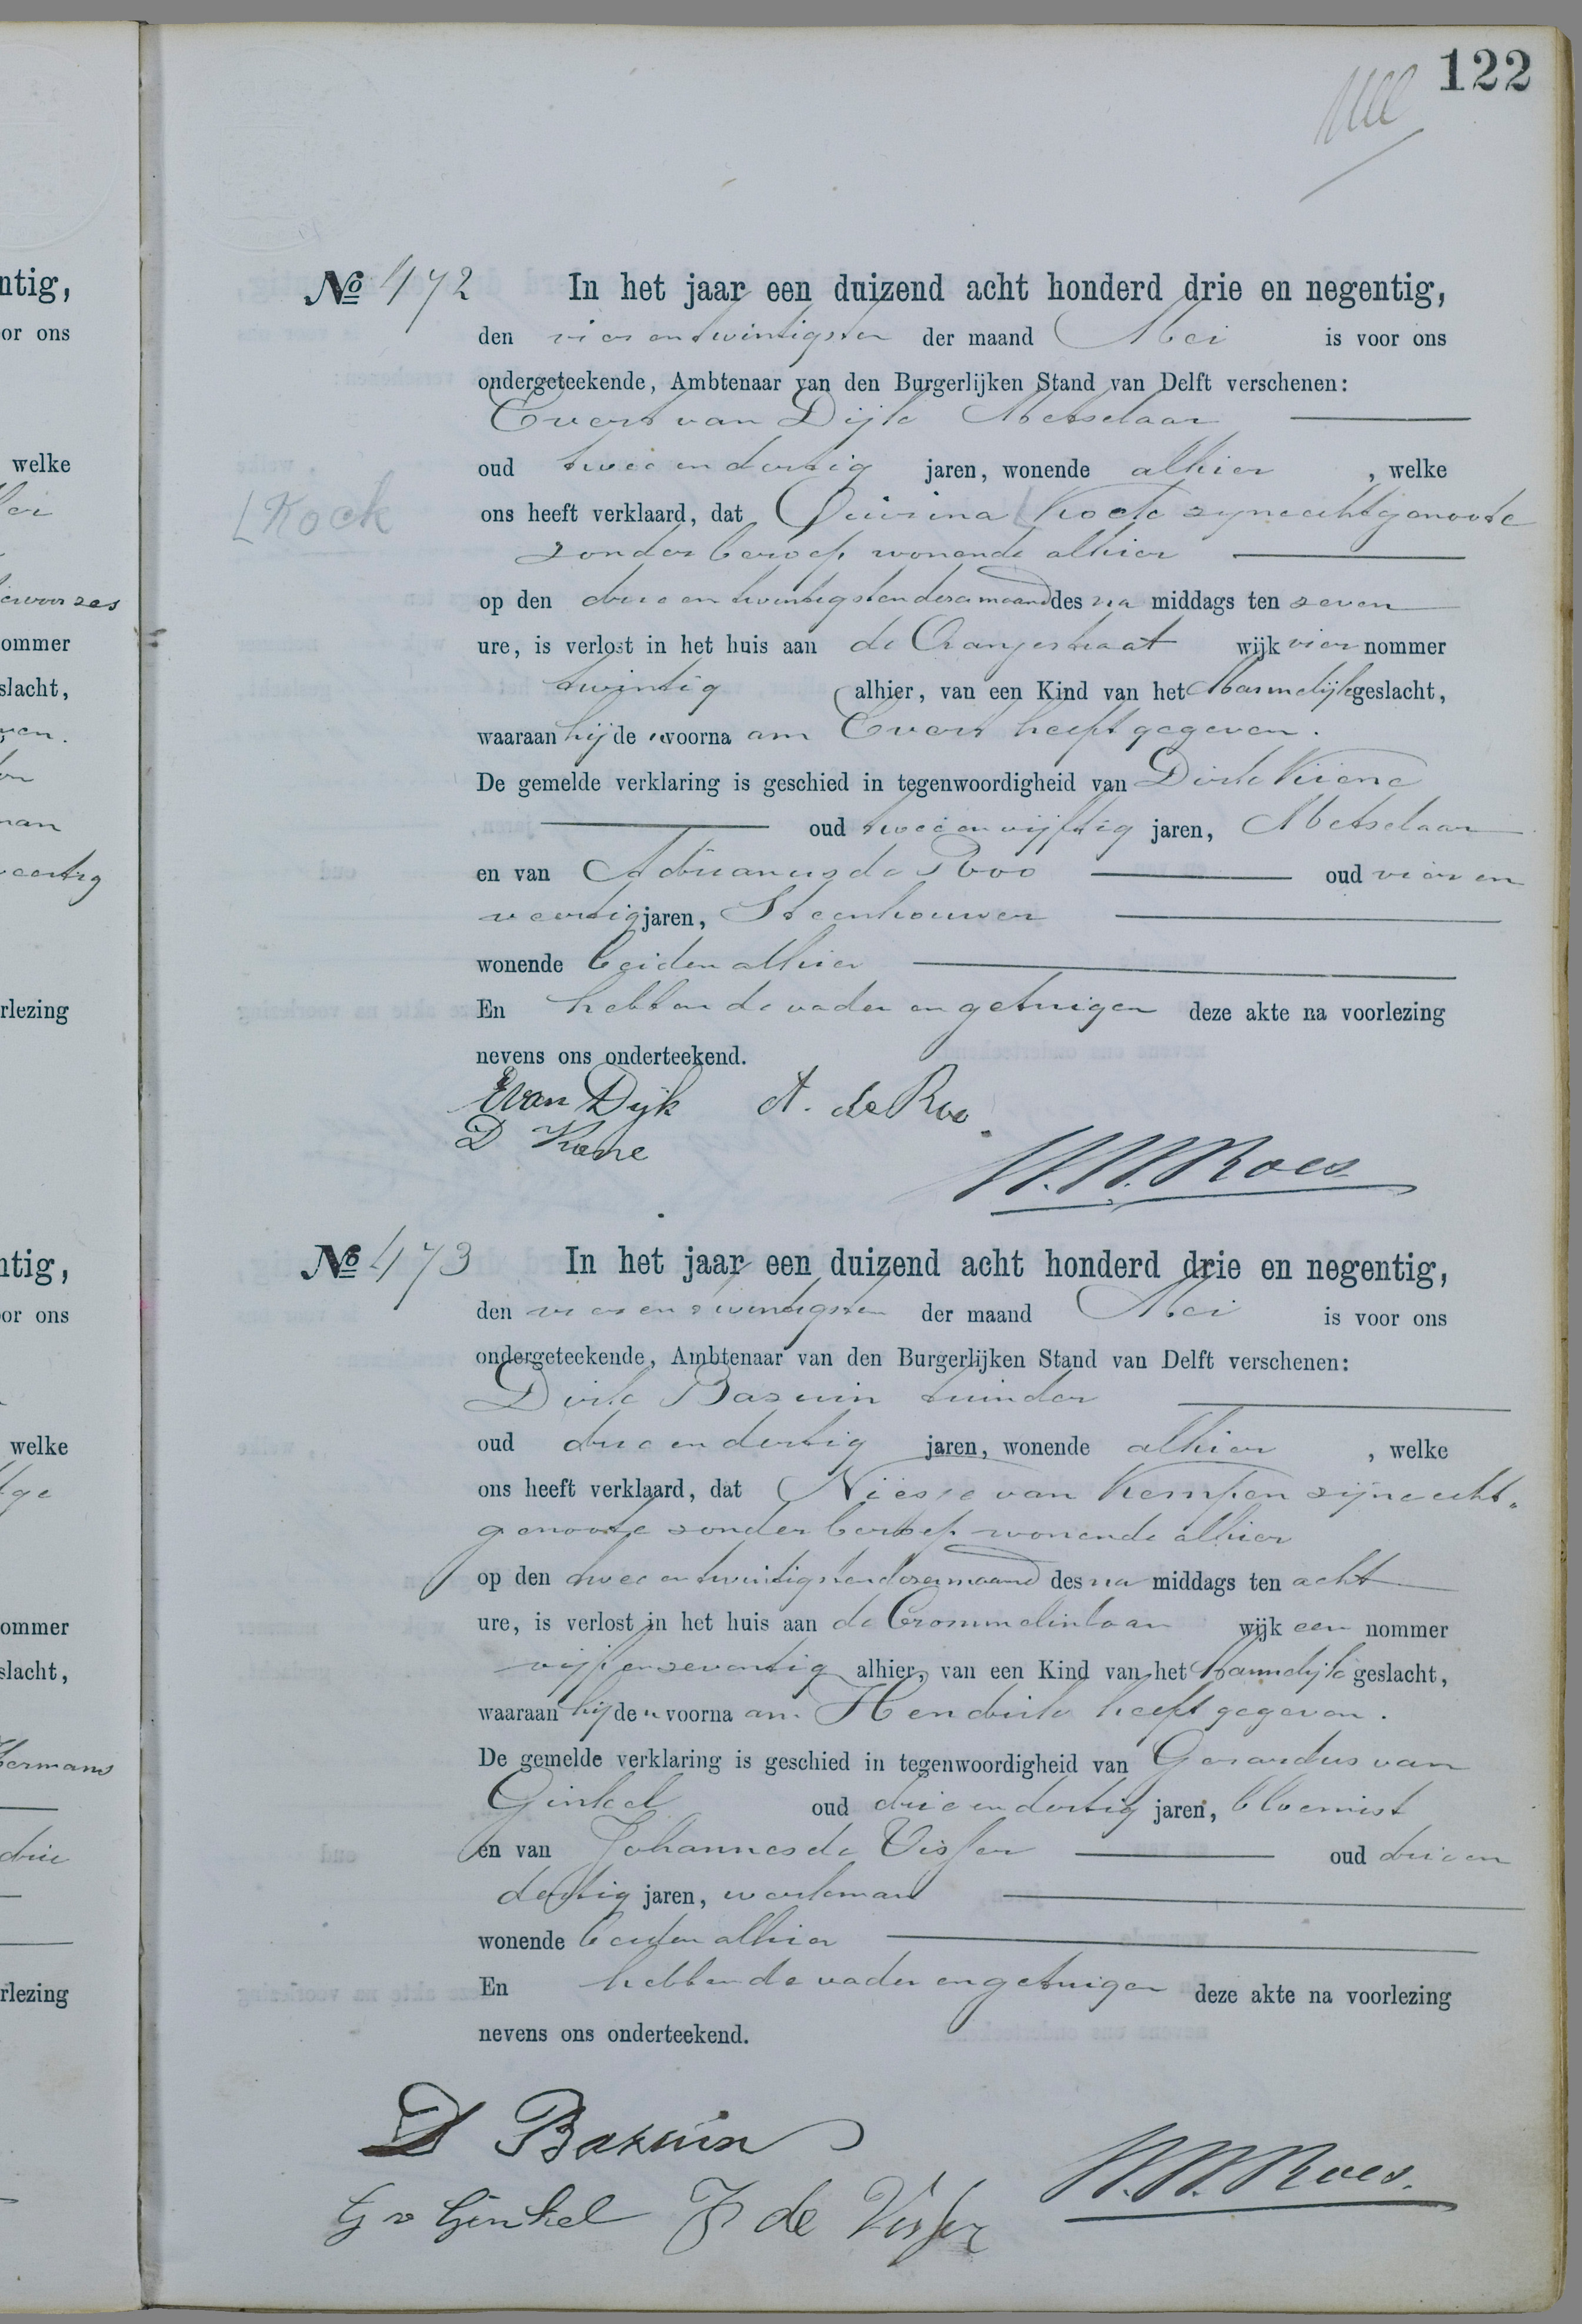 122
No 472 In het jaar een duizend acht honderd drie en negentig,
den vier en twintigsten der maand Mei is voor ons
ondergeteekende, Ambtenaar van den Burgerlijken Stand van Delft verschenen:
Evert van Dijk Metselaar
oud twee en dertig jaren, wonende alhier , welke
[Kock
ons heeft verklaard, dat Quirina [Kock zijne echtgenoote
zonder beroep wonende alhier
op den drie en twintigsten dezer maand des na middags ten zeven
ure, is verlost in het huis aan de Oranjestraat wijk vier nommer
twintig alhier, van een Kind van het Mannelijk geslacht,
waaraan hij de voorna am Evert heeft gegeven.
De gemelde verklaring is geschied in tegenwoordigheid van Dirk Kiene
oud twee en vijftig jaren, Metselaar
en van Adrianus de Roo oud vier en
veertig jaren, Steenhouwer
wonende beiden alhier
En hebben de vader en getuigen deze akte na voorlezing
nevens ons onderteekend.
E van Dijk A. de Roo
D Kiene
W.W. Roes
No 473 In het jaar een duizend acht honderd drie en negentig,
den vier en twintigsten der maand Mei is voor ons
ondergeteekende, Ambtenaar van den Burgerlijken Stand van Delft verschenen:
Dirk Bazuin tuinder
oud drie en dertig jaren, wonende alhier , welke
ons heeft verklaard, dat Niesje van Kempen zijne echt-
genoote zonder beroep wonende alhier
op den twee en twintigsten dezer maand des na middags ten acht
ure, is verlost in het huis aan de Crommelinlaan wijk een nommer
vijf en zeventig alhier, van een Kind van het Mannelijk geslacht,
waaraan hij de voorna am Hendrik heeft gegeven.
De gemelde verklaring is geschied in tegenwoordigheid van Gerardus van
Ginkel oud drie en dertig jaren, bloemist
en van Johannes de Visser oud drie en
dertig jaren, werkman
wonende beiden alhier
En hebben de vader en getuigen deze akte na voorlezing
nevens ons onderteekend.
D Bazuin
W.W. Roes.
G v Ginkel J de Visser